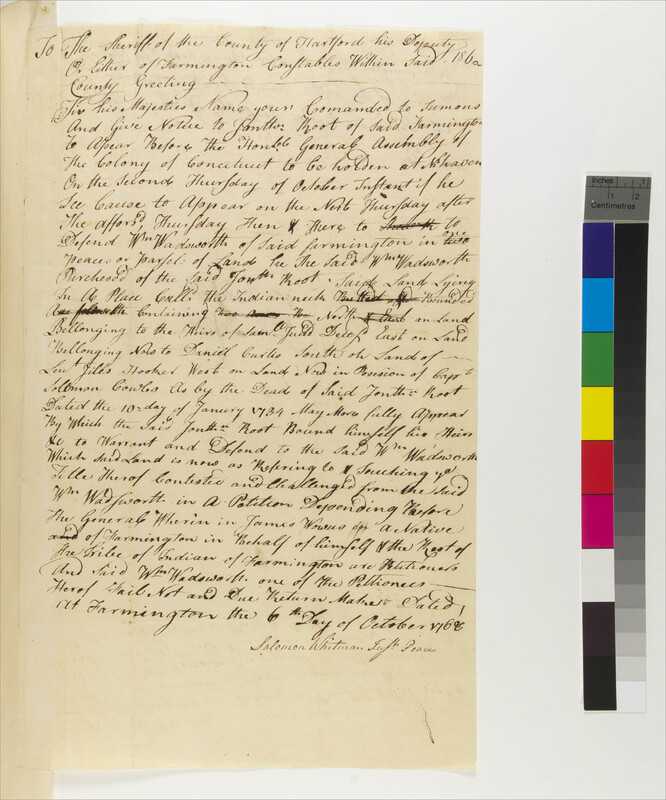 To The Sheriff of the County of Hartford his Deputy
Or Either of Farmington Constables Within Said 186a
County Greeting
In his Majesties Name your Comanded to Sumons
And Give Notice to Jonth:n Root of Said Farmington
to Appear Before The Honble General Assembly of
the Colony of Conecticut to be holden at N:haven
On the Second Thursday of October Instant if he
See Cause to Appear on the Next Thursday after
The affors:d Thursday then & there to to
Defend Wm Wadsworth of Said farmington in one
Peace or Parsel of Land he The Said Wm Wadsworth
Percheased of the Said Jonth:n Root Said Land Lying
In A Place Call:d the Indian neck Bounded
Containing North on Land
Bellonging to the Heirs of Sam:ll Judd Deces:d East on Land
Bellonging Now to Daniel Curtis South on Land of
Leiut Giles Hooker West on Land Now in Posesion of Capt
Solomon Cowles As by the Dead of Said Jonth:n Root
Dated the 10 day of Janury 1734 May More fully Appear
By Which the Said Jonth:n Root Bound himself his Heirs
&c to Warrant and Defend to the Said Wm Wadsworth
Which Said Land is now as Refering to & Touching ye
Title Therof Contested and Challenged from the Said
Wm Wadsworth in A Petition Depending Before
the General Wherin in James Wowus a Native
of Farmington in Behalf of himself & the Rest of
the Tribe of Indian of Farmington are Petitioners
And Said Wm Wadsworth one of the Petitionees
Herof Fail Not and Due Return Make Dated
At Farmington the 6th Day of October 1768
Solomon Whitman Just Peace
Inches
1 2
Centimetres